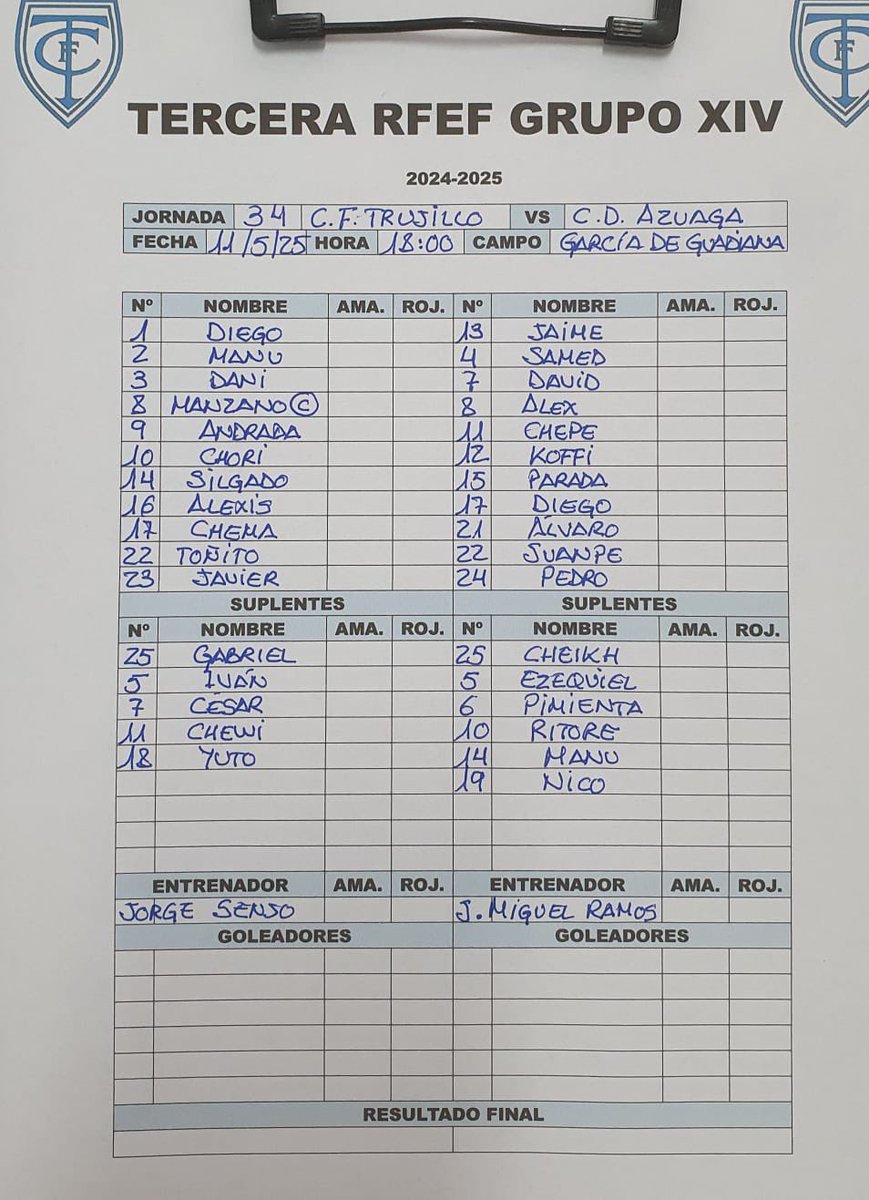 TERCERA RFEF GRUPO XIV
2024-2025
JORNADA 34 C.F. TRUJILLO VS C.D. AZUAGA
FECHA 11/5/25 HORA 18:00 CAMPO GARCÍA DE GUADIANA
Nº NOMBRE AMA. ROJ. Nº NOMBRE AMA. ROJ.
1 DIEGO 13 JAIME
2 MANU 4 SAMED
3 DANI 7 DAVID
8 MANZANO © 8 ALEX
9 ANDRADA 11 CHEPE
10 CHORI 12 KOFFI
14 SILGADO 15 PARADA
16 ALEXIS 17 DIEGO
17 CHEMA 21 ÁLVARO
22 TOÑITO 22 JUANPE
23 JAVIER 24 PEDRO
SUPLENTES SUPLENTES
Nº NOMBRE AMA. ROJ. Nº NOMBRE AMA. ROJ.
25 GABRIEL 25 CHEIKH
5 IVÁN 5 EZEQUIEL
7 CÉSAR 6 PIMIENTA
11 CHEWI 10 RITORE
18 YUTO 14 MANU
19 NICO
ENTRENADOR AMA. ROJ. ENTRENADOR AMA. ROJ.
JORGE SENSO J. MIGUEL RAMOS
GOLEADORES GOLEADORES
RESULTADO FINAL